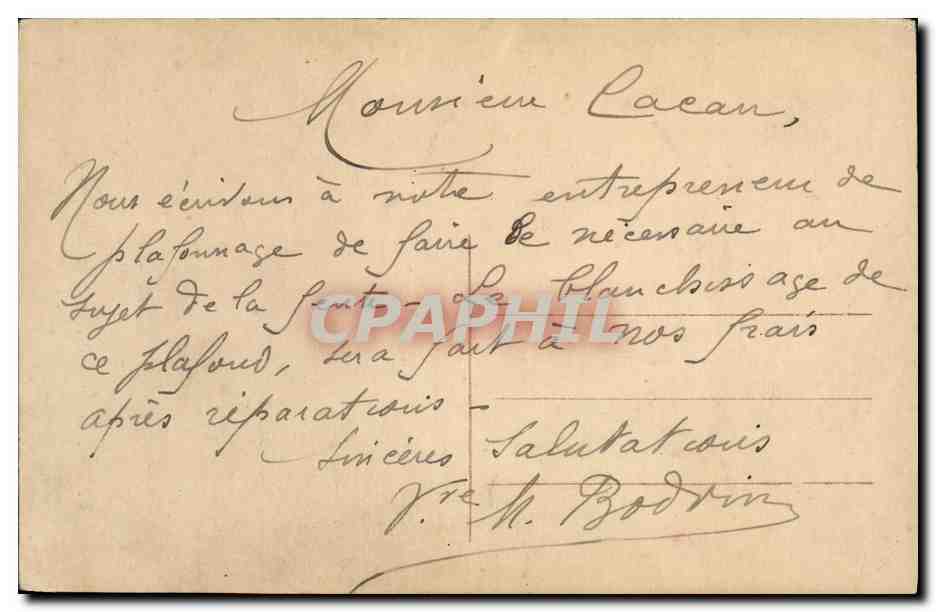 Monsieur Cacan,
Nous écrivons à notre entrepreneur de
plafonnage de faire le nécessaire au
sujet de la fente - Le blanchissage de
CPAPHIL
ce plafond, sera fait à nos frais
après réparations -
Sincères Salutations
M. Bodvin